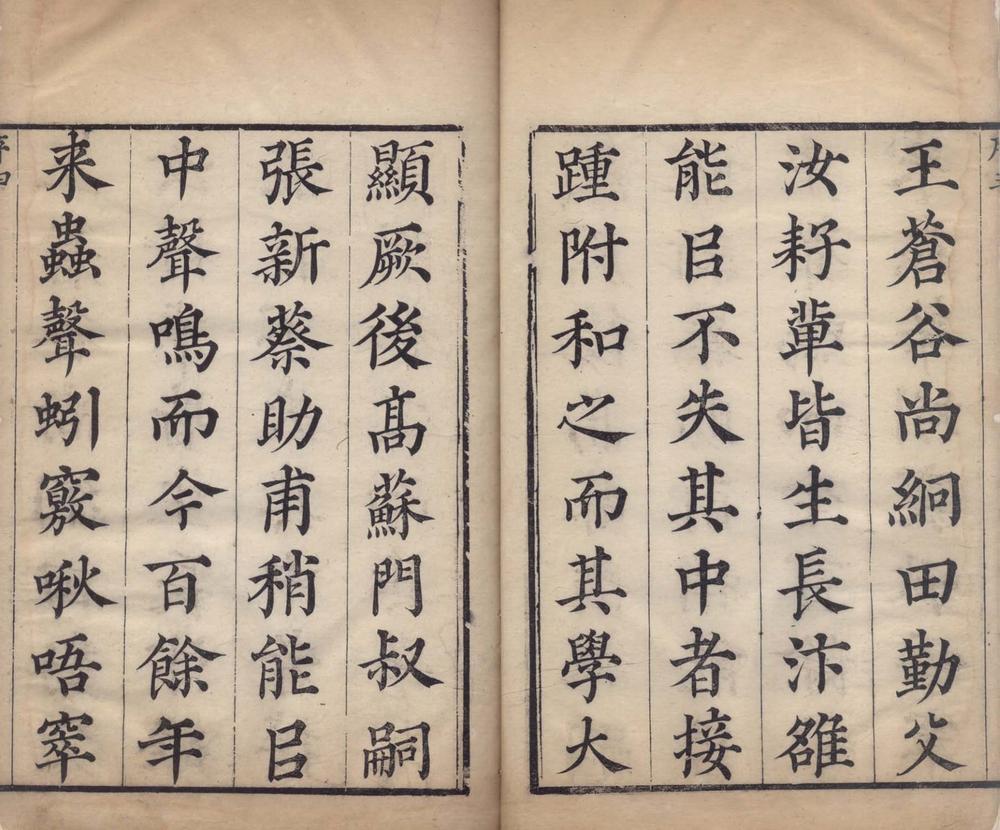 王蒼谷尚絅田勤父
汝耔輩皆生長汴雒
能㠯不失其中者接
踵附和之而其學大
顯厥後髙蘇門叔嗣
張新蔡助甫稍能㠯
中聲鳴而今百餘年
来蟲聲蚓竅啾唔窣